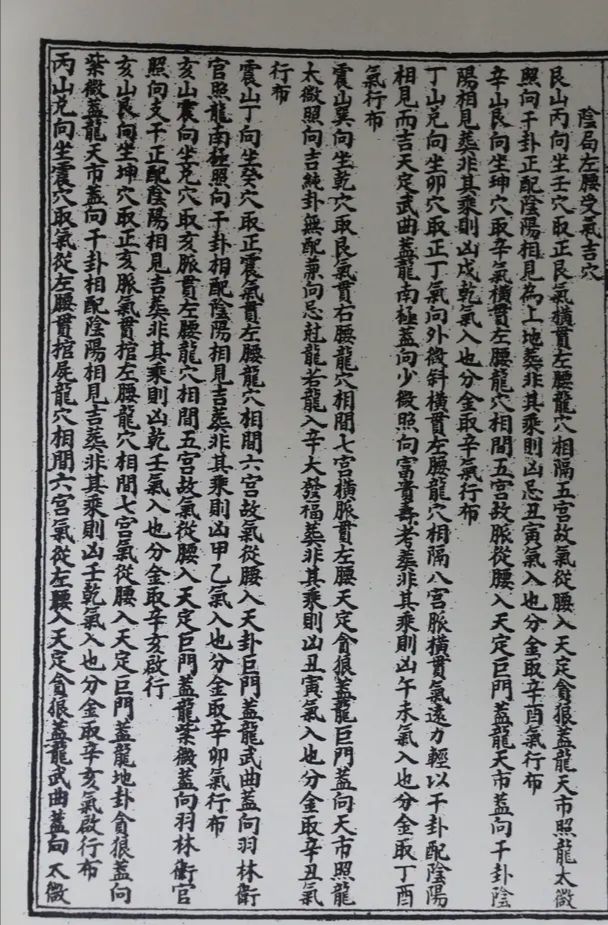 陰局左腰受氣吉穴
艮山丙向坐壬穴取正艮氣橫貫左腰龍穴相隔五宮故氣從腰入天定貪狼蓋龍天市照龍太微
照向干卦正配陰陽相見為上地葬非其乘則凶忌丑寅氣入也分金取辛酉氣行布
辛山艮向坐坤穴取辛氣橫貫左腰龍穴相間五宮故脈從腰入天定巨門蓋龍天市蓋向干卦陰
陽相見葬非其乘則凶戌乾氣入也分金取辛氣行布
丁山兌向坐卯穴取正丁氣向外微斜橫貫左腰龍穴相隔八宮脈橫貫氣遠力輕以干卦配陰陽
相見而吉天定武曲蓋龍南極蓋向少微照向富貴壽考葬非其乘則凶午未氣入也分金取丁酉
氣行布
震山巽向坐乾穴取艮氣貫右腰龍穴相間七宮橫脈貫左腰天定貪狼蓋龍巨門蓋向天市照龍
太微照向吉純卦無配兼向忌尅龍若龍入辛大發福葬非其乘則凶丑寅氣入也分金取辛丑氣
行布
震山丁向坐癸穴取正震氣貫左腰龍穴相間六宮故氣從腰入天卦巨門蓋龍武曲蓋向羽林衛
官照龍南極照向干卦相配陰陽相見吉葬非其乘則凶甲乙氣入也分金取辛卯氣行布
亥山震向坐兌穴取亥脈貫左腰龍穴相間五宮故氣從腰入天定巨門蓋龍紫微蓋向羽林衛官
照向支干正配陰陽相見吉葬非其乘則凶乾壬氣入也分金取辛亥啟行
亥山艮向坐坤穴取正亥脈氣貫棺左腰龍穴相間七宮氣從腰入天定巨門蓋龍地卦貪狼蓋向
紫微蓋龍天市蓋向干卦相配陰陽相見吉葬非其乘則凶壬乾氣入也分金取辛亥氣啟行布
丙山兌向坐震穴取氣從左腰貫棺屍龍穴相間六宮氣從左腰入天定貪狼蓋龍武曲蓋向太微